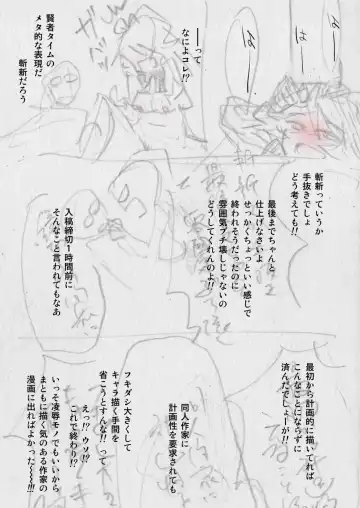 はーー
はーー
ーーって
なによコレ!?
賢者タイムの
メタ的な表現だ
斬新だろう
斬新っていうか
手抜きでしょ
どう考えても!!
最後までちゃんと
仕上げなさいよ
せっかくちょっといい感じで
終われそうだったのに
雰囲気ブチ壊しじゃないの
どうしてくれんのよ!!
入稿締切1時間前に
そんなこと言われてもなあ
最初から計画的に描いてれば
こんなことにならずに
済んだでしょーが!!
同人作家に
計画性を要求されても
フキダシ大きくして
キャラ描く手間を
省こうとすんな!! って
えっ!? ウソ!?
これで終わり!?
いっそ凌辱モノでもいいから
まともに描く気のある作家の
漫画に出ればよかった〜〜!!!